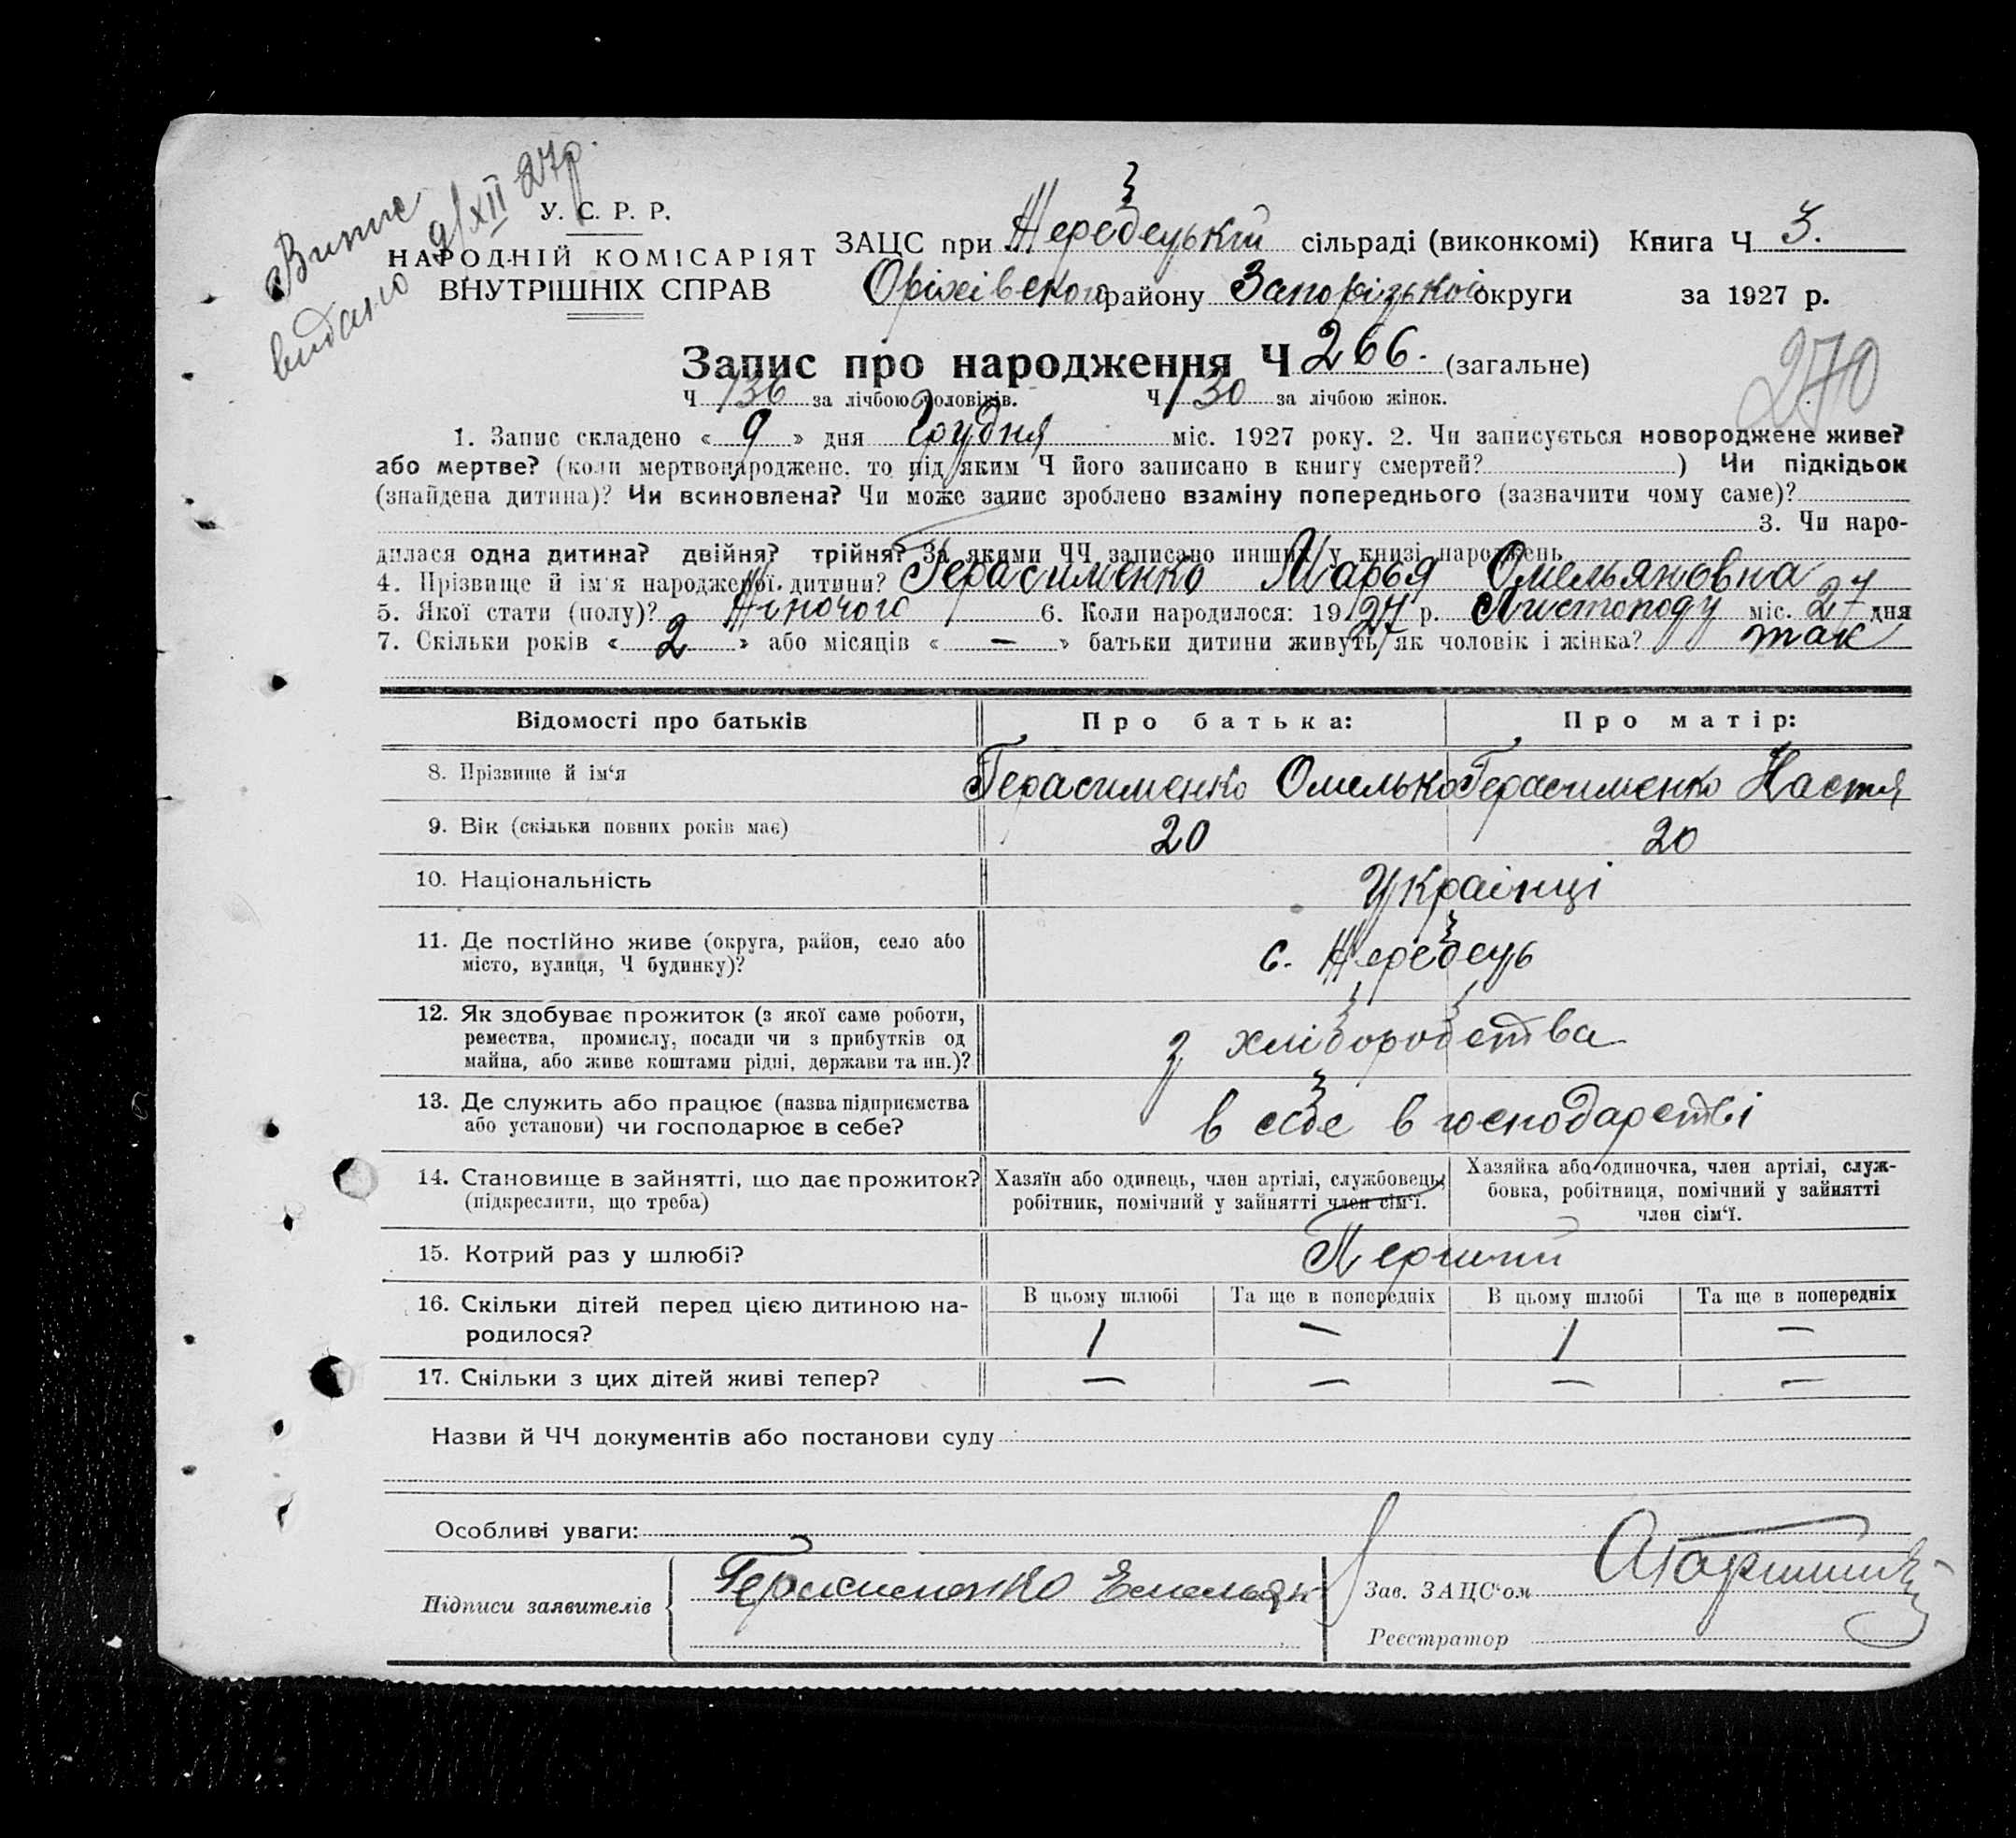 Випис
видано 9/XII 27р.
У. С. Р. Р.
НАРОДНІЙ КОМІСАРІЯТ
ВНУТРІШНІХ СПРАВ
ЗАЦС при Жеребецькій сільраді (виконкомі) Книга Ч 3.
Оріхівського району Запорізької округи за 1927 р.
Запис про народження Ч 266. (загальне)
270
Ч 136 за лічбою чоловіків. Ч 130 за лічбою жінок.
1. Запис складено « 9 » дня Грудня міс. 1927 року. 2. Чи записується новороджене живе?
або мертве? (коли мертвонароджене, то під яким Ч його записано в книгу смертей? ) Чи підкідьок
(знайдена дитина)? Чи всиновлена? Чи може запис зроблено взаміну попереднього (зазначити чому саме)?
3. Чи наро-
дилася одна дитина? двійня? трійня? За якими ЧЧ записано инших у книзі народжень
4. Прізвище й ім'я народженої дитини? Герасименко Марья Омельяновна
5. Якої стати (полу)? Жіночого 6. Коли народилося: 1927 р. Листопаду міс. 27 дня
7. Скільки років « 2 » або місяців « — » батьки дитини живуть як чоловік і жінка? так
Відомості про батьків Про батька: Про матір:
8. Прізвище й ім'я Герасименко Омелько Герасименко Настя
9. Вік (скільки повних років має) 20 20
10. Національність Українці
11. Де постійно живе (округа, район, село або
місто, вулиця, Ч будинку)? с. Жеребець
12. Як здобуває прожиток (з якої саме роботи,
ремества, промислу, посади чи з прибутків од
майна, або живе коштами рідні, держави та ин.)? з хліборобства
13. Де служить або працює (назва підприємства
або установи) чи господарює в себе? в себе в господарстві
14. Становище в зайнятті, що дає прожиток?
(підкреслити, що треба)
Хазяїн або одинець, член артілі, службовець,
робітник, помічний у зайнятті член сім'ї.
Хазяйка або одиночка, член артілі, служ-
бовка, робітниця, помічний у зайнятті
член сім'ї.
15. Котрий раз у шлюбі? Перший
16. Скільки дітей перед цією дитиною на-
родилося?
В цьому шлюбі Та ще в попередніх В цьому шлюбі Та ще в попередніх
1 — 1 —
17. Скільки з цих дітей живі тепер? — — — —
Назви й ЧЧ документів або постанови суду
Особливі уваги:
Підписи заявителів Герасименко Емельян
Зав. ЗАЦС'ом
Реєстратор